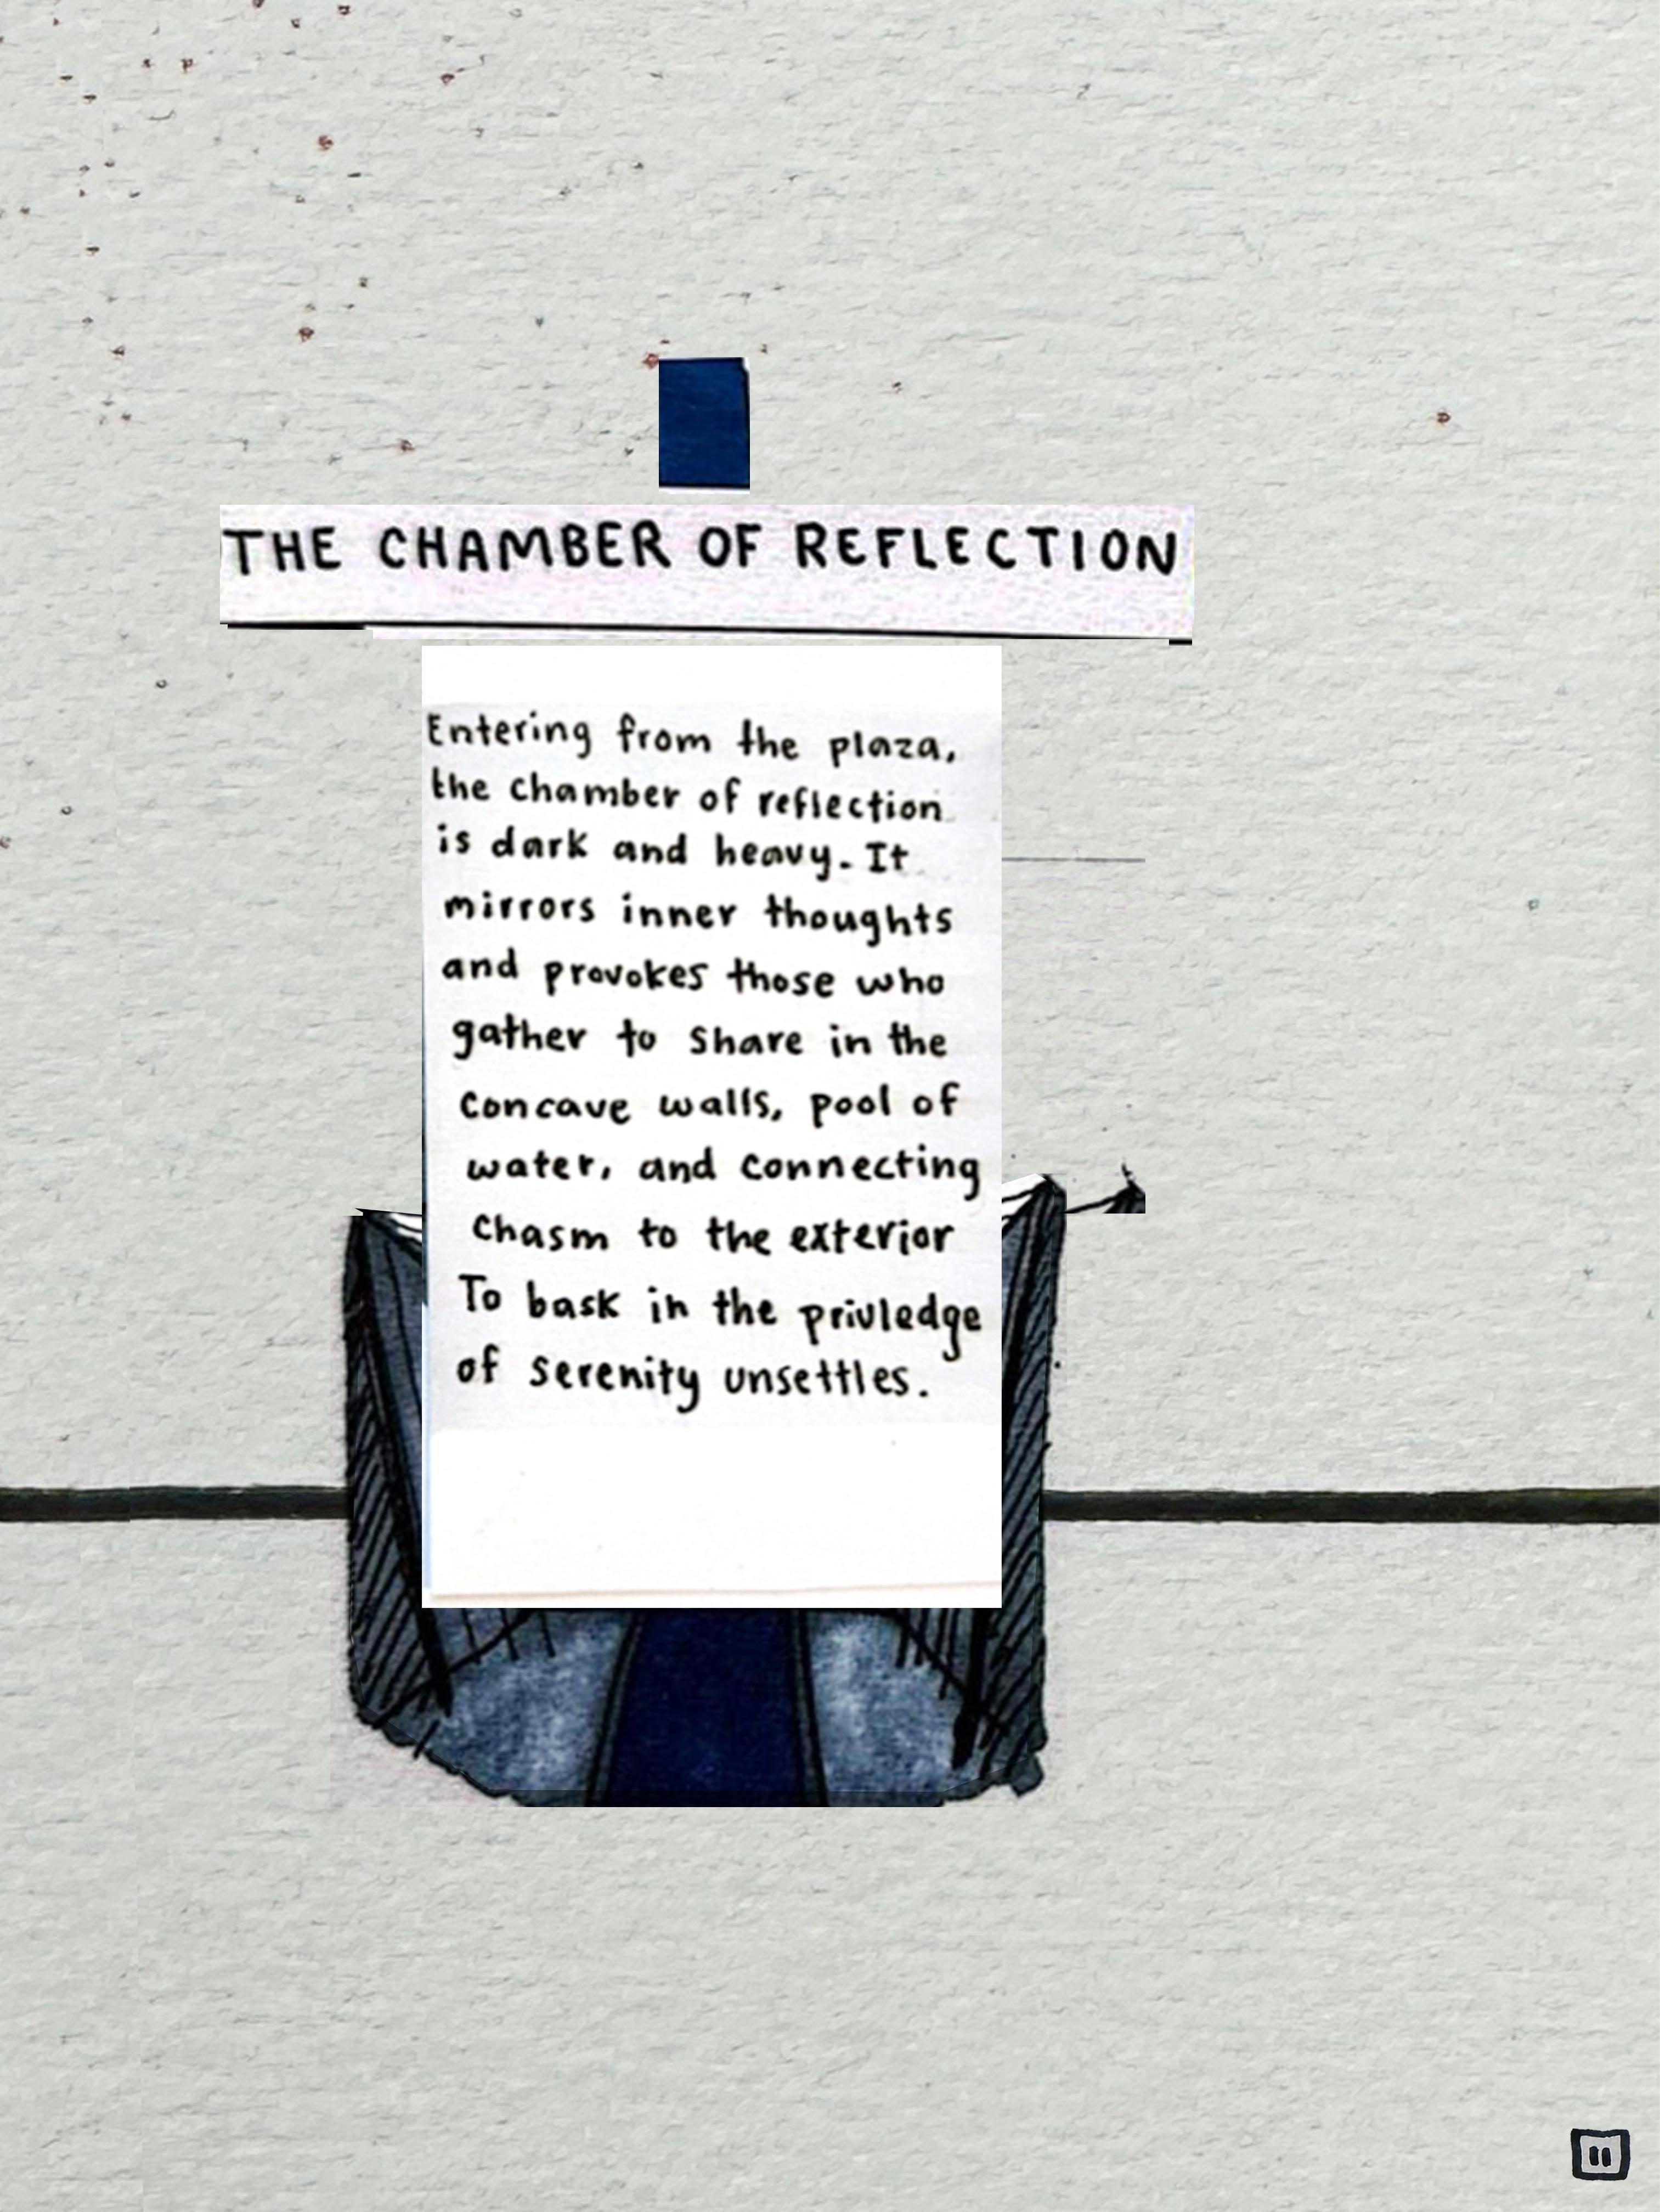 THE CHAMBER OF REFLECTION
Entering from the plaza,
the chamber of reflection
is dark and heavy. It
mirrors inner thoughts
and provokes those who
gather to share in the
concave walls, pool of
water, and connecting
chasm to the exterior
To bask in the privledge
of serenity unsettles.
11